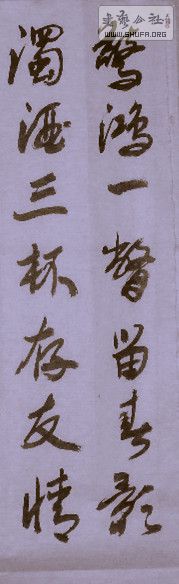 書藝公社
WWW.SHUFA.ORG
驚鴻一瞥留春影
濁酒三杯存友情